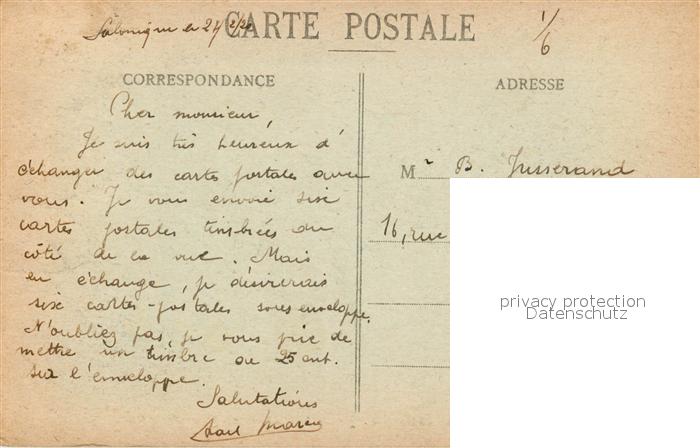 Salonique le 27/2/20
CARTE POSTALE
1/6
CORRESPONDANCE
ADRESSE
Cher monsieur,
Je suis très heureux d'
échanger des cartes postales avec
vous. Je vous envoie six
cartes postales timbrées du
côté de la vue. Mais
en échange, je désirerais
six cartes-postales sous enveloppe.
N'oubliez pas, je vous prie de
mettre un timbre de 25 cent.
sur l'enveloppe.
Salutations
Mr B. Jusserand
16, rue
privacy protection
Datenschutz